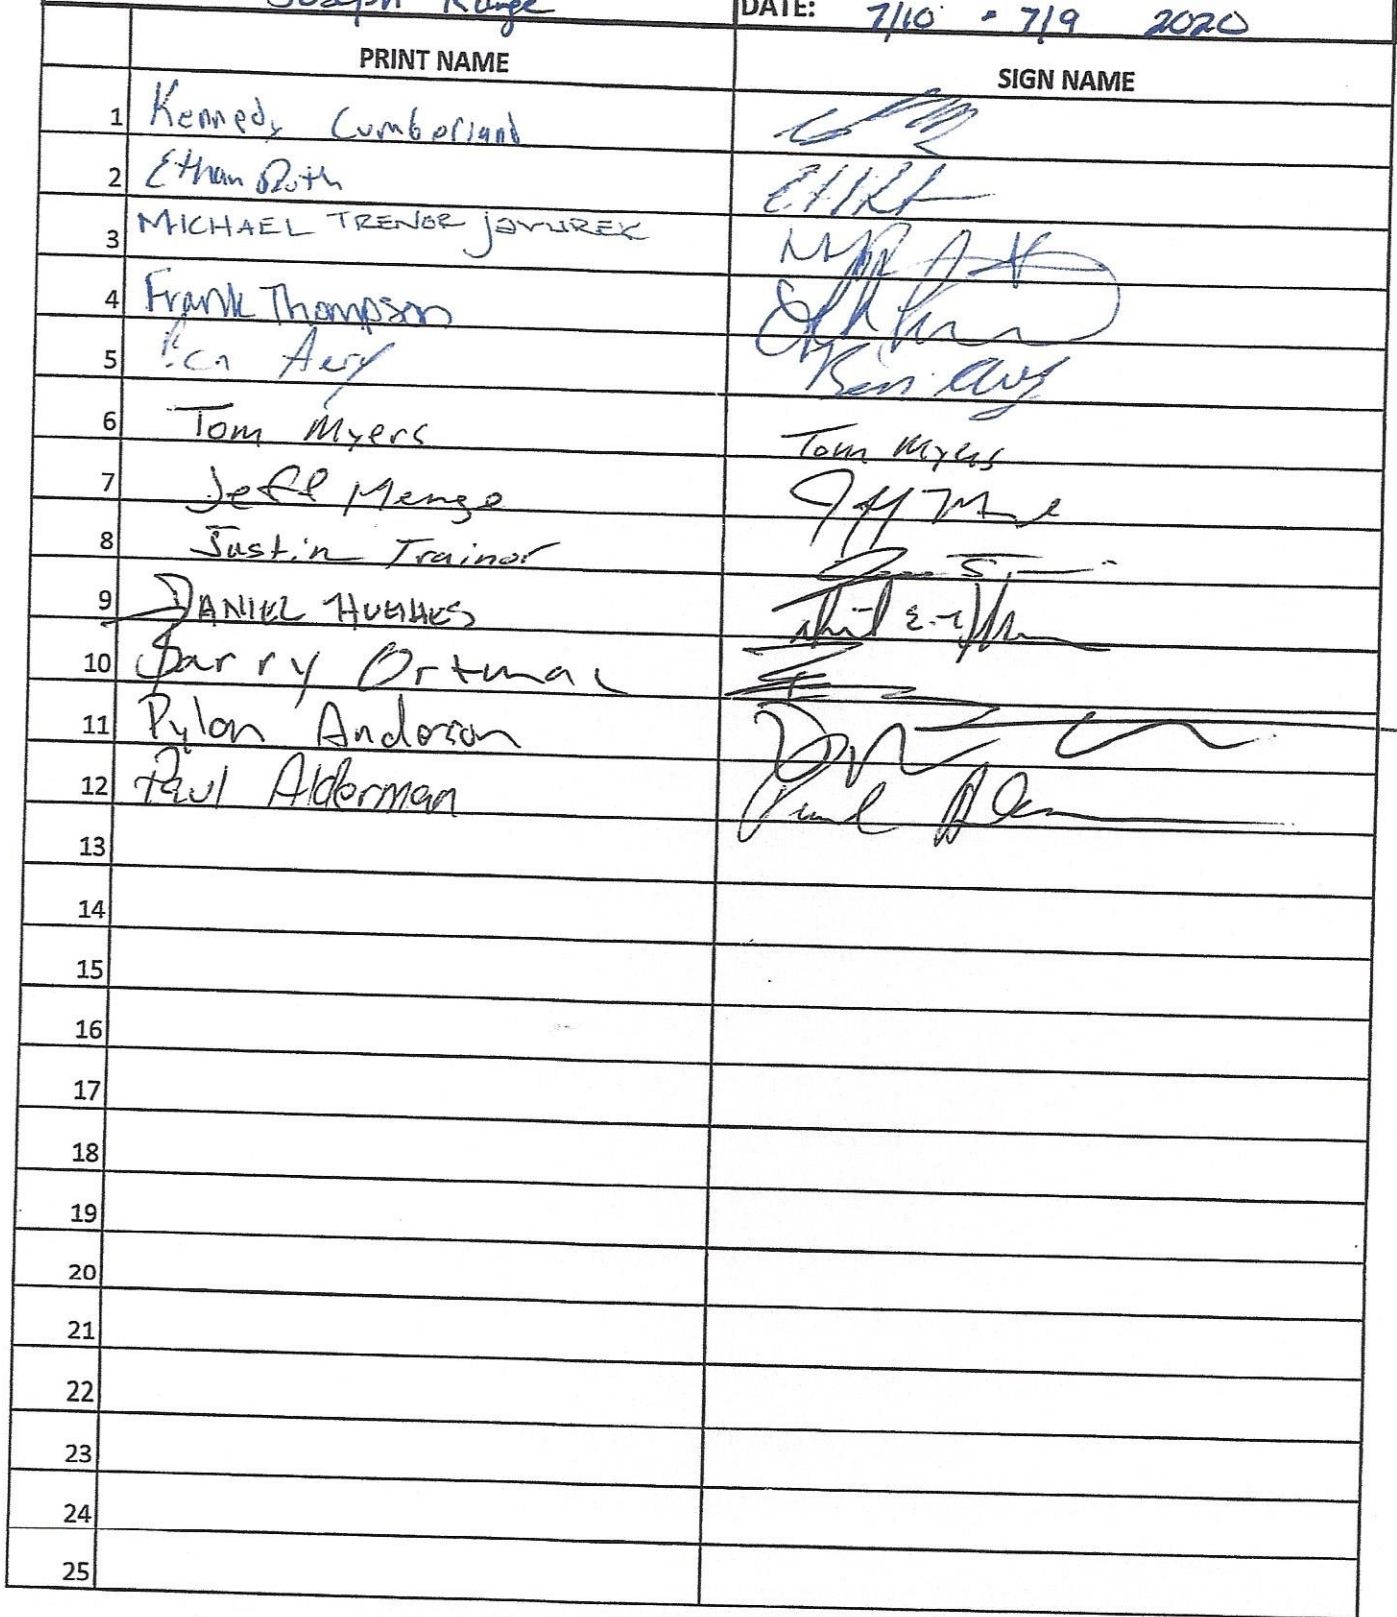 Joseph Runge DATE: 7/10 - 7/9 2020
PRINT NAME SIGN NAME
1 Kennedy Cumberland
2 Ethan Ruth
3 MICHAEL TRENOR JAVUREK
4 Frank Thompson
5 Ben Avey Ben Avey
6 Tom Myers Tom Myers
7 Jeff Menge
8 Justin Trainor
9 DANIEL HUGHES
10 Barry Ortman
11 Dylon Anderson
12 Paul Alderman Paul
13
14
15
16
17
18
19
20
21
22
23
24
25